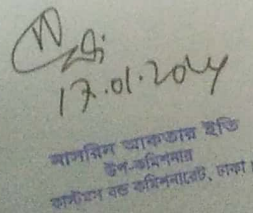 17.01.2024
নাসরিন আকতার ইতি
উপ-কমিশনার
কাস্টমস বন্ড কমিশনারেট, ঢাকা।